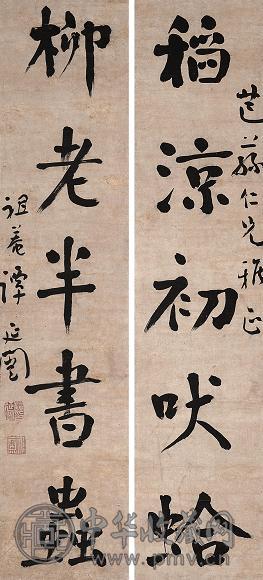 芑蓀仁兄雅正
稻涼初吠蛤
柳老半書蟲
祖菴譚延闓
中华收藏网
www.pmv.cn